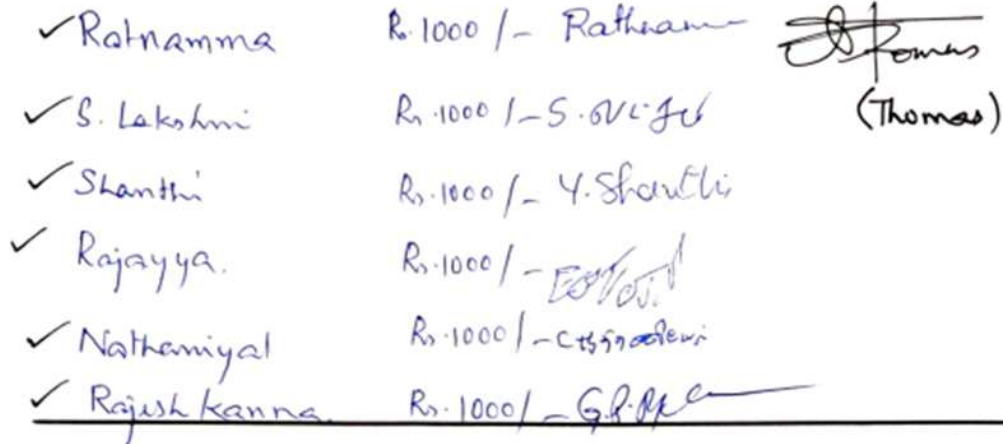 ✓ Ratnamma Rs. 1000/- Rathnam Thomas
(Thomas)
✓ S. Lakshmi Rs. 1000/- S.
✓ Shanthi Rs. 1000/- Y. Shanthi
✓ Rajayya. Rs. 1000/-
✓ Nathaniyal Rs. 1000/-
✓ Rajesh Kanna. Rs. 1000/-